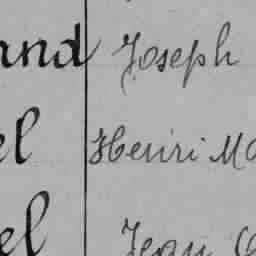 and Joseph
el Henri Ma
el Jean